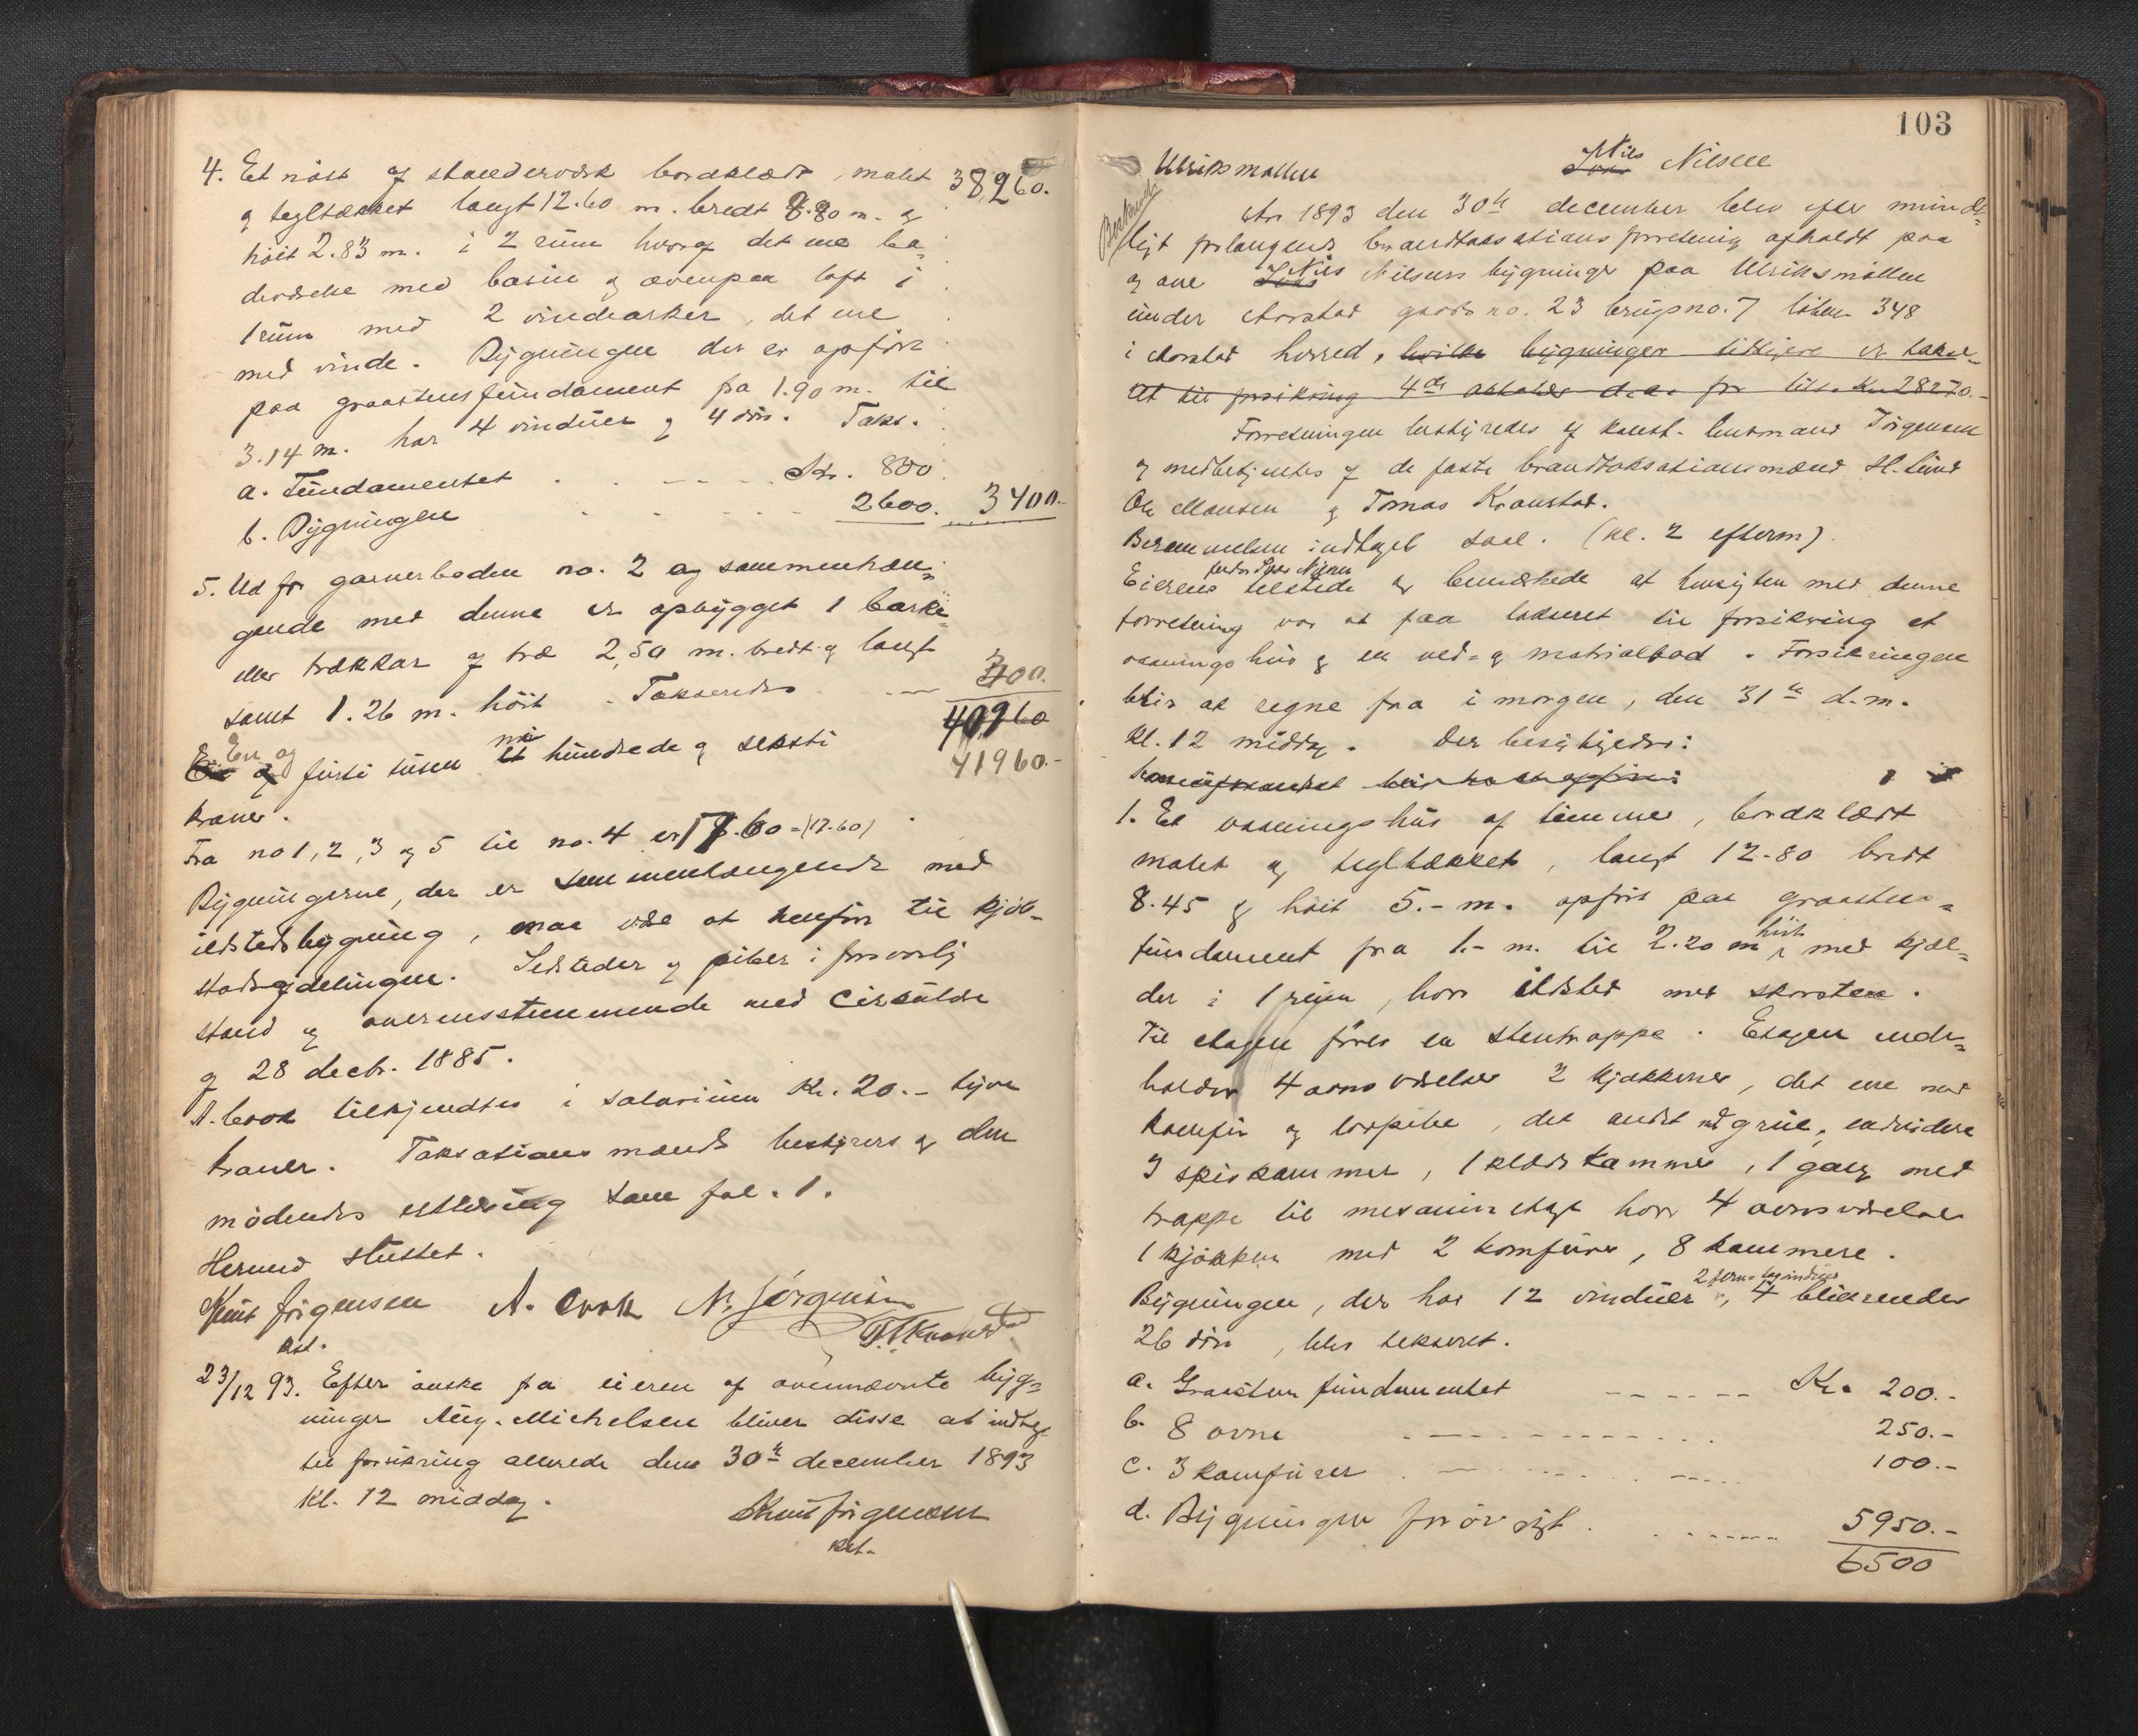 4. Et nöst af stenderværk bordklædt, malet 38,260.
og tegltækket langt 12.60 m. bredt 8.80 m. og
höit 2.83 m. i 2 rüm hvoraf det ene ba-
deværelse med basin og ovenpaa loft i
1 rüm med 2 vindearker, det ene
med vinde. Bygningen der er opfört
paa graastensfündament fra 1.90 m. til
3.14 m. har 4 vindüer og 4 döre. Takst.
a. Fündamentet Kr. 800
b. Bygningen 2600. 3400.-
5. Ud for garnerboden no. 2 og sammenhæn-
gende med denne er opbygget 1 barke
eller trækkar af træ 2,50 m. bredt og langt
samt 1.26 m. höit. Takseredes 300.
40,960
En og förti tüsen ni hündrede og seksti 41960.-
kroner.
Fra no 1, 2, 3 og 5 til no. 4 er 17.60 = (17.60)
Bygningerne, der er sammenhængende med
ildstedsbygning, maa være at henföre til kjöb-
stadsafdelingen. Ildsteder og piber i forsvarlig
stand og overensstemmende med cirkülære
af 28 decbr. 1885.
A. Crook tilkjendtes i salariüm Kr. 20.- tyve
kroner. Taksationsmænds bestyrers og den
mödendes erklæring som fol. 1.
Hermed slüttet.
Knut Jörgensen A. Crook N. Jörgensen
kst. T. Kronstad
23/12 93. Efter önske fra eieren af ovennævnte byg-
ninger Aug. Michelsen bliver disse at indtage
til forsikring allerede den 30te december 1893
Kl. 12 middag.
Knut Jörgensen
kst.
103
Ulriksmöllen Jens Nils Nilsen
Beskrivelse
Aar 1893 den 30te december blev efter mündt-
ligt forlangende brandtaksationsforretning afholdt paa
og over Jens Nils Nilsens bygninger paa Ulriksmöllen
ünder Aarstad gaards no. 23 brügsno. 7 löben 348
i Aarstad herred, hvilke bygninger tidligere er takse-
ret til forsikring 4de oktober d.a. for tils. Kr. 28270.-
Forretningen bestyredes af konst. lensmand Jörgensen
og medbetjentes af de faste brandtaksationsmænd H. Lünd
Ole Monsen og Tomas Kronstad.
Berammelsen indtaget saal. (kl. 2 efterm)
Eierens fader Jens Nilsen tilstede og bemærkede at hensigten med denne
forretning var at faa takseret til forsikring et
vaaningshüs og en ved- og matrialbod. Forsikringen
blir at regne fra i morgen, den 31te d.m.
kl. 12 middag. Der besigtigedes:
1. Et vaaningshüs af tömmer, bordklædt
malet og tegltækket, langt 12.80 bredt
8.45 og höit 5.- m. opfört paa graastens-
fündament fra 1.- m. til 2.20 m höit, med kjæl-
der i 1 rüm, hvor ildsted med skorsten.
Til etagen förer en stentrappe. Etagen inde-
holder 4 ovnsværelser 2 kjökkener, det ene med
komfür og törpibe, det andet med grüe, endvidere
3 spiskammer, 1 klædeskammer, 1 gang med
trappe til mesaninetage hvor 4 ovnsværelser
1 kjökken med 2 komfürer, 8 kammere.
Bygningen, der har 12 vindüer, 2 jerns tagvindüer 4 blikrender
26 döre, blev takseret.
a. Graastensfündamentet Kr. 200.-
b. 8 ovne 250.-
c. 3 komfürer 100.-
d. Bygningen forövrigt 5950.-
6500